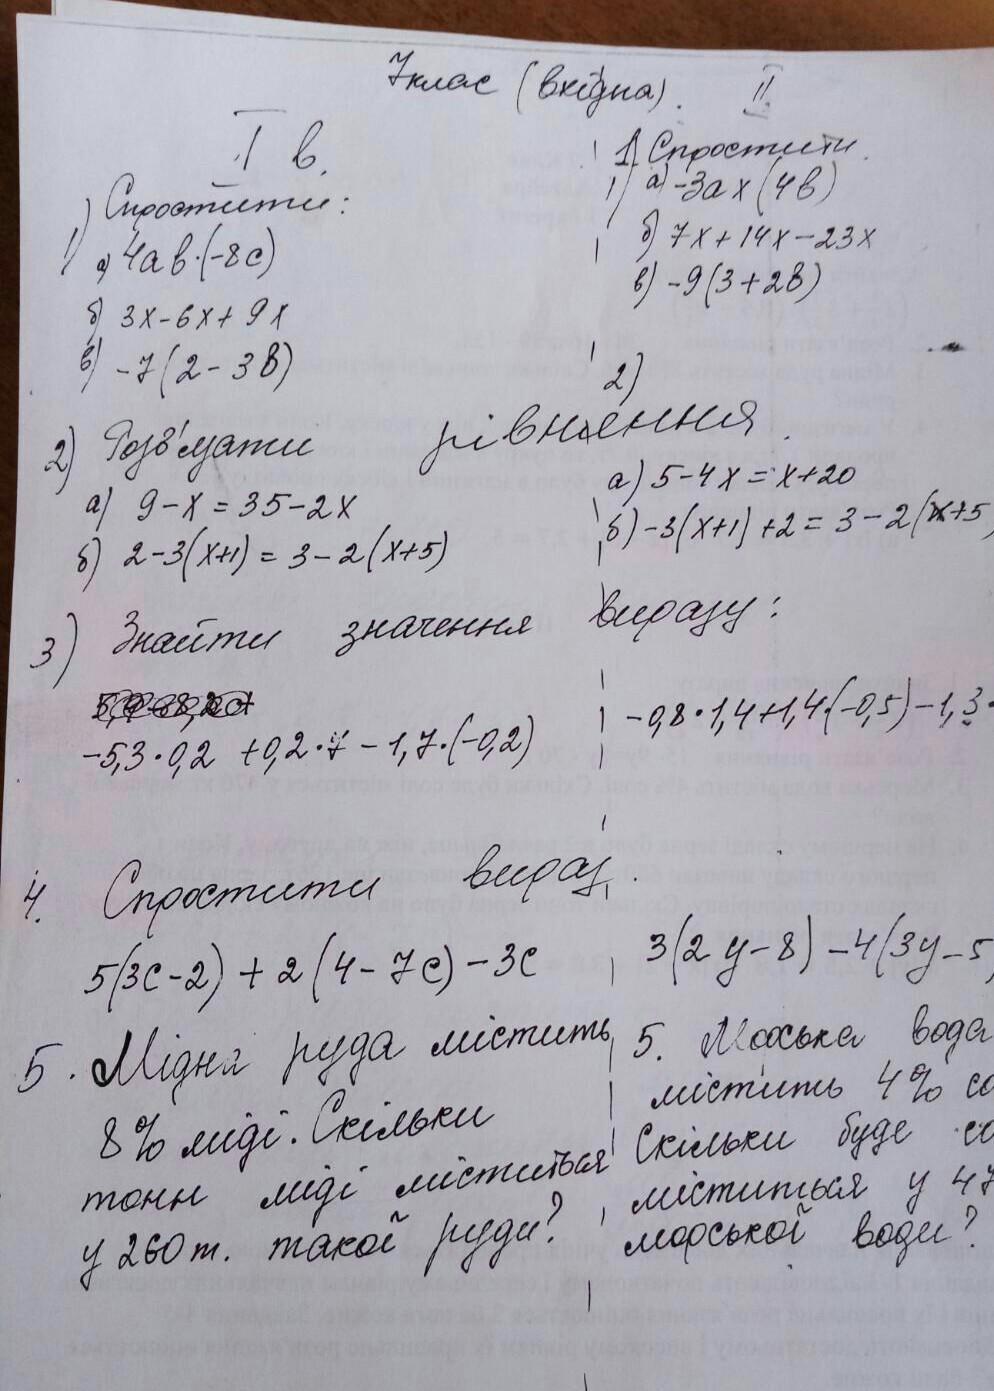 7 клас (вхідна). II
I в.
1) Спростити:
а) 4ab·(-8c)
б) 3x-6x+9x
в) -7(2-3в)
1. Спростити.
1) а) -3а х (4в)
б) 7x+14x-23x
в) -9(3+2в)
2)
2) Розв'язати рівняння.
а) 9-x=35-2x
б) 2-3(x+1)=3-2(x+5)
а) 5-4x=x+20
б) -3(x+1)+2=3-2(x+5
3) Знайти значення виразу:
-5,3·0,2 +0,2·7-1,7·(-0,2)
-0,8·1,4+1,4·(-0,5)-1,3·
4. Спростити вираз.
5(3c-2)+2(4-7c)-3c
3(2y-8)-4(3y-5)
5. Мідна руда містить
8% міді. Скільки
тонн міді міститься
у 260 т. такої руди?
5. Морська вода
містить 4% со
Скільки буде со
міститься у 47
морської води?